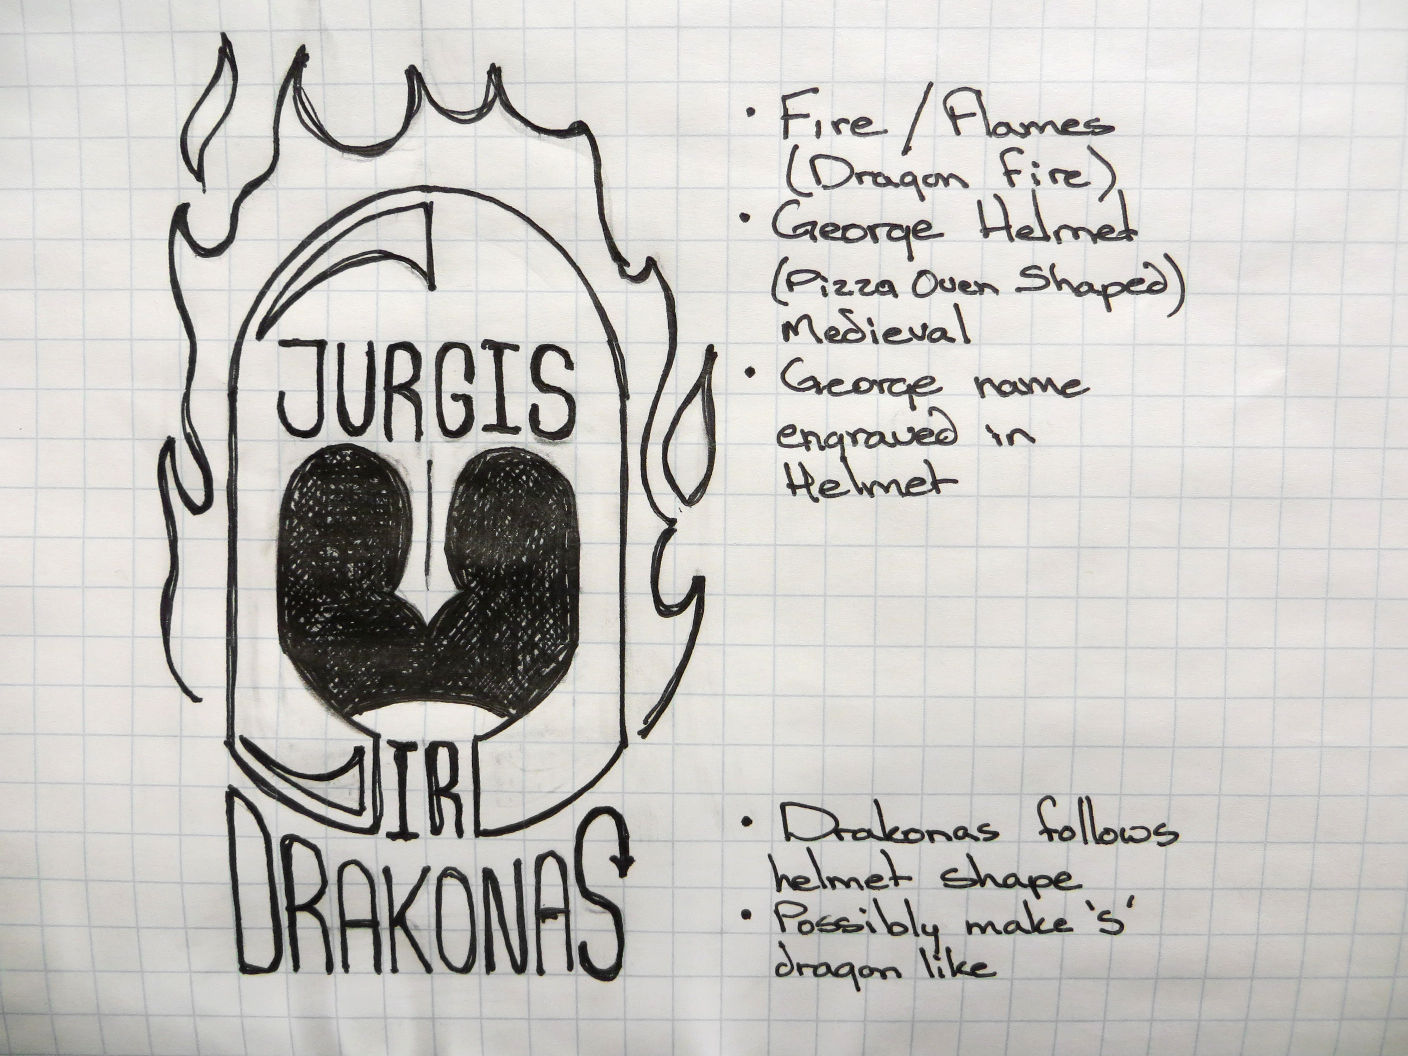 JURGIS
IR
DRAKONAS
• Fire / Flames
(Dragon fire)
• George Helmet
(Pizza Oven Shaped)
Medieval
• George name
engraved in
Helmet
• Drakonas follows
helmet shape
• Possibly make 's'
dragon like